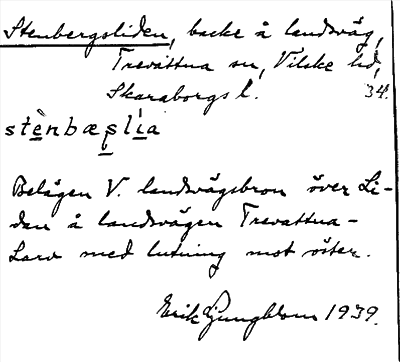 Stenbergsliden, backe å landsväg,
Trevattna sn, Vilske hd,
Skaraborgs l. 34.
stènbæslia
Belägen V. landsvägsbron över Li-
dan å landsvägen Trevattna-
Larv med lutning mot öster.
Erik Ljungblom 1939.